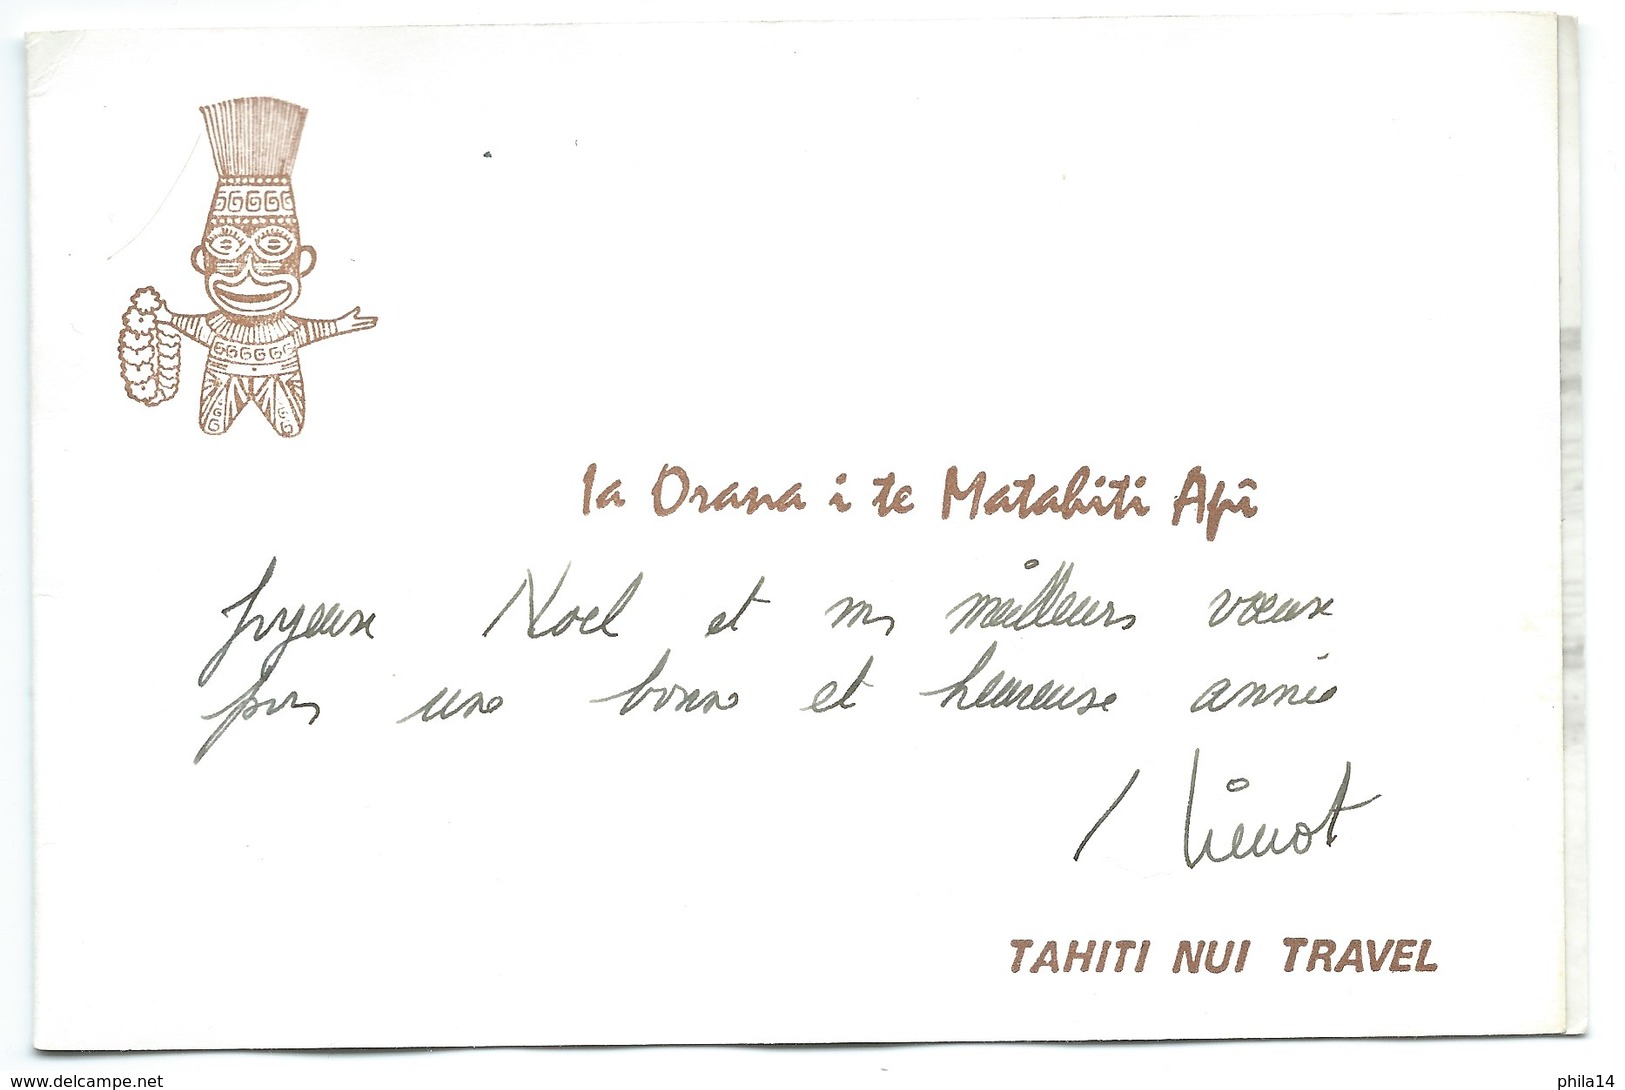 Ia Orana i te Matahiti Apî
Joyeux Noel et mes meilleurs voeux
pour une bonne et heureuse année
TAHITI NUI TRAVEL
www.delcampe.net
phila14